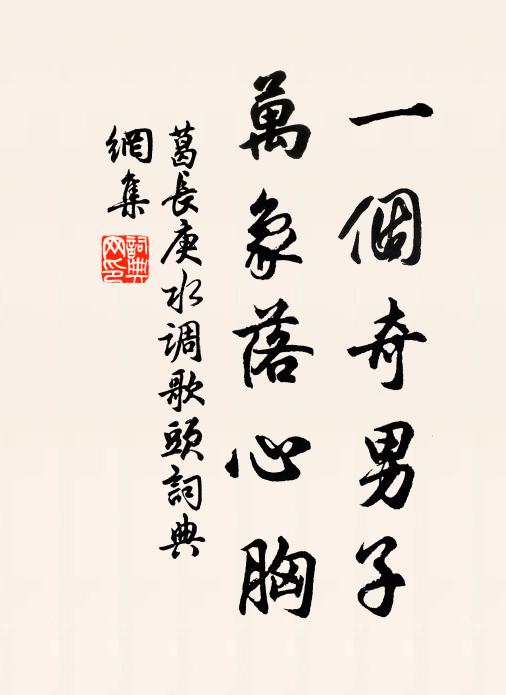 一個奇男子
萬象落心胸
葛長庚水調歌頭詞典
網集
詞典網印